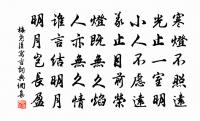 寒燈不照遠
光止一室明
小人不慮遠
義止目前榮
燈既無久焰
人亦無久情
誰言結明月
明月豈長盈
梅堯臣寓言詞典網集